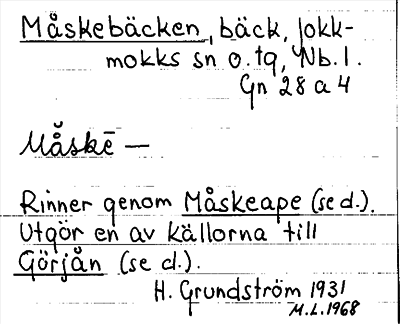 Måskebäcken, bäck, Jokk-
mokks sn o. tg, Nb. l.
Gn 28 a 4
Måskē —
Rinner genom Måskeape (se d.).
Utgör en av källorna till
Görjån (se d.).
H. Grundström 1931
M.L. 1968